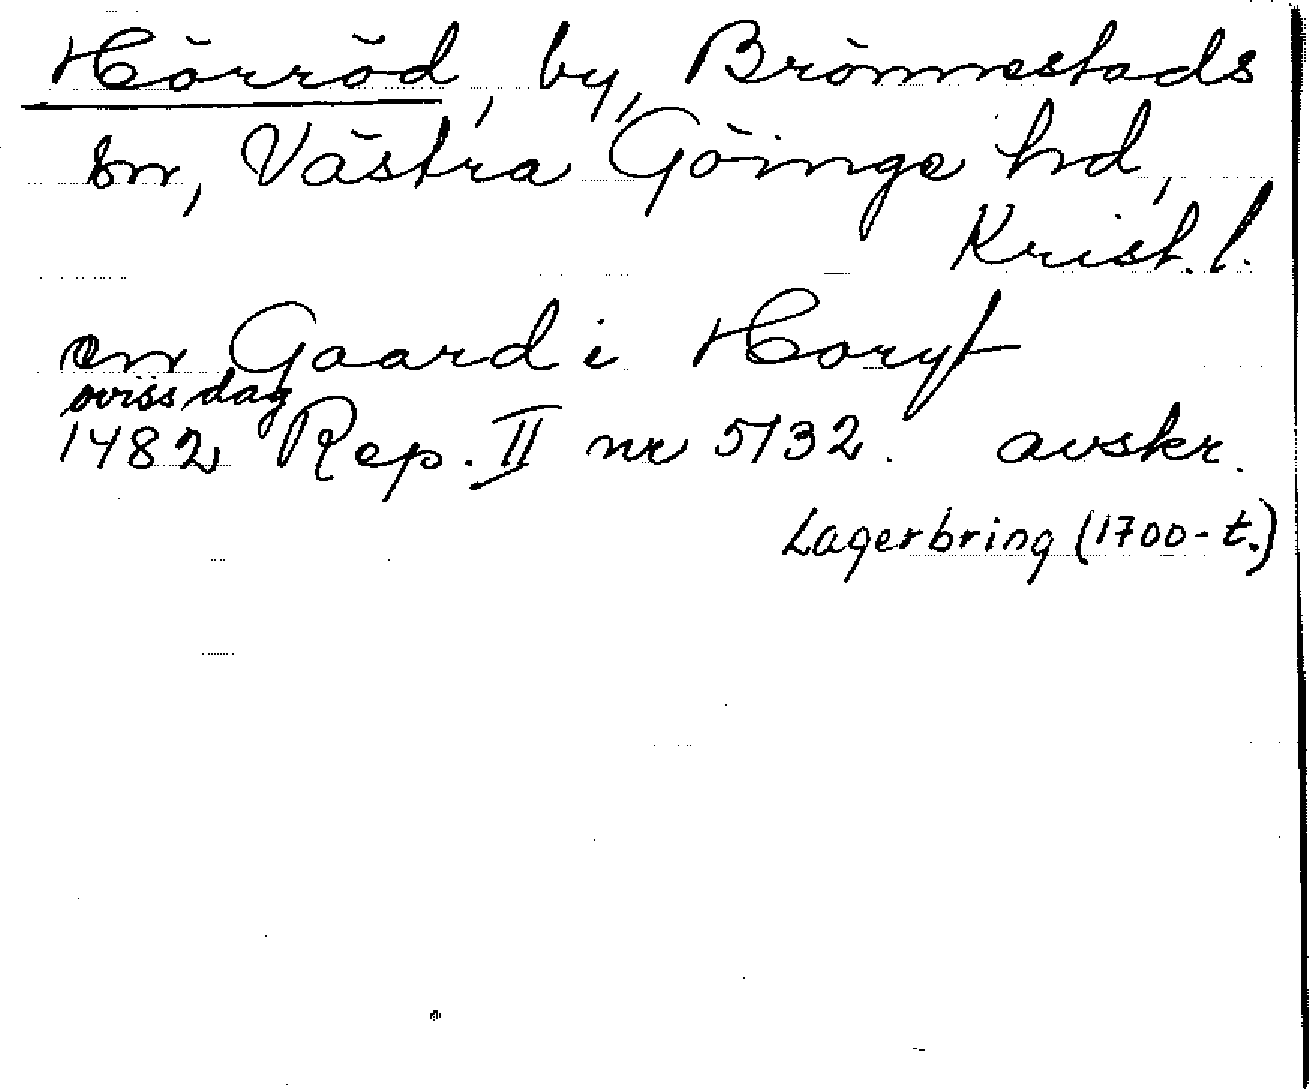 Hörröd, by, Brönnestads
sn, Västra Göinge hd,
Krist. l.
en Gaard i Horyt
oviss dag
1482 Rep. II nr 5132. avskr.
Lagerbring (1700-t.)